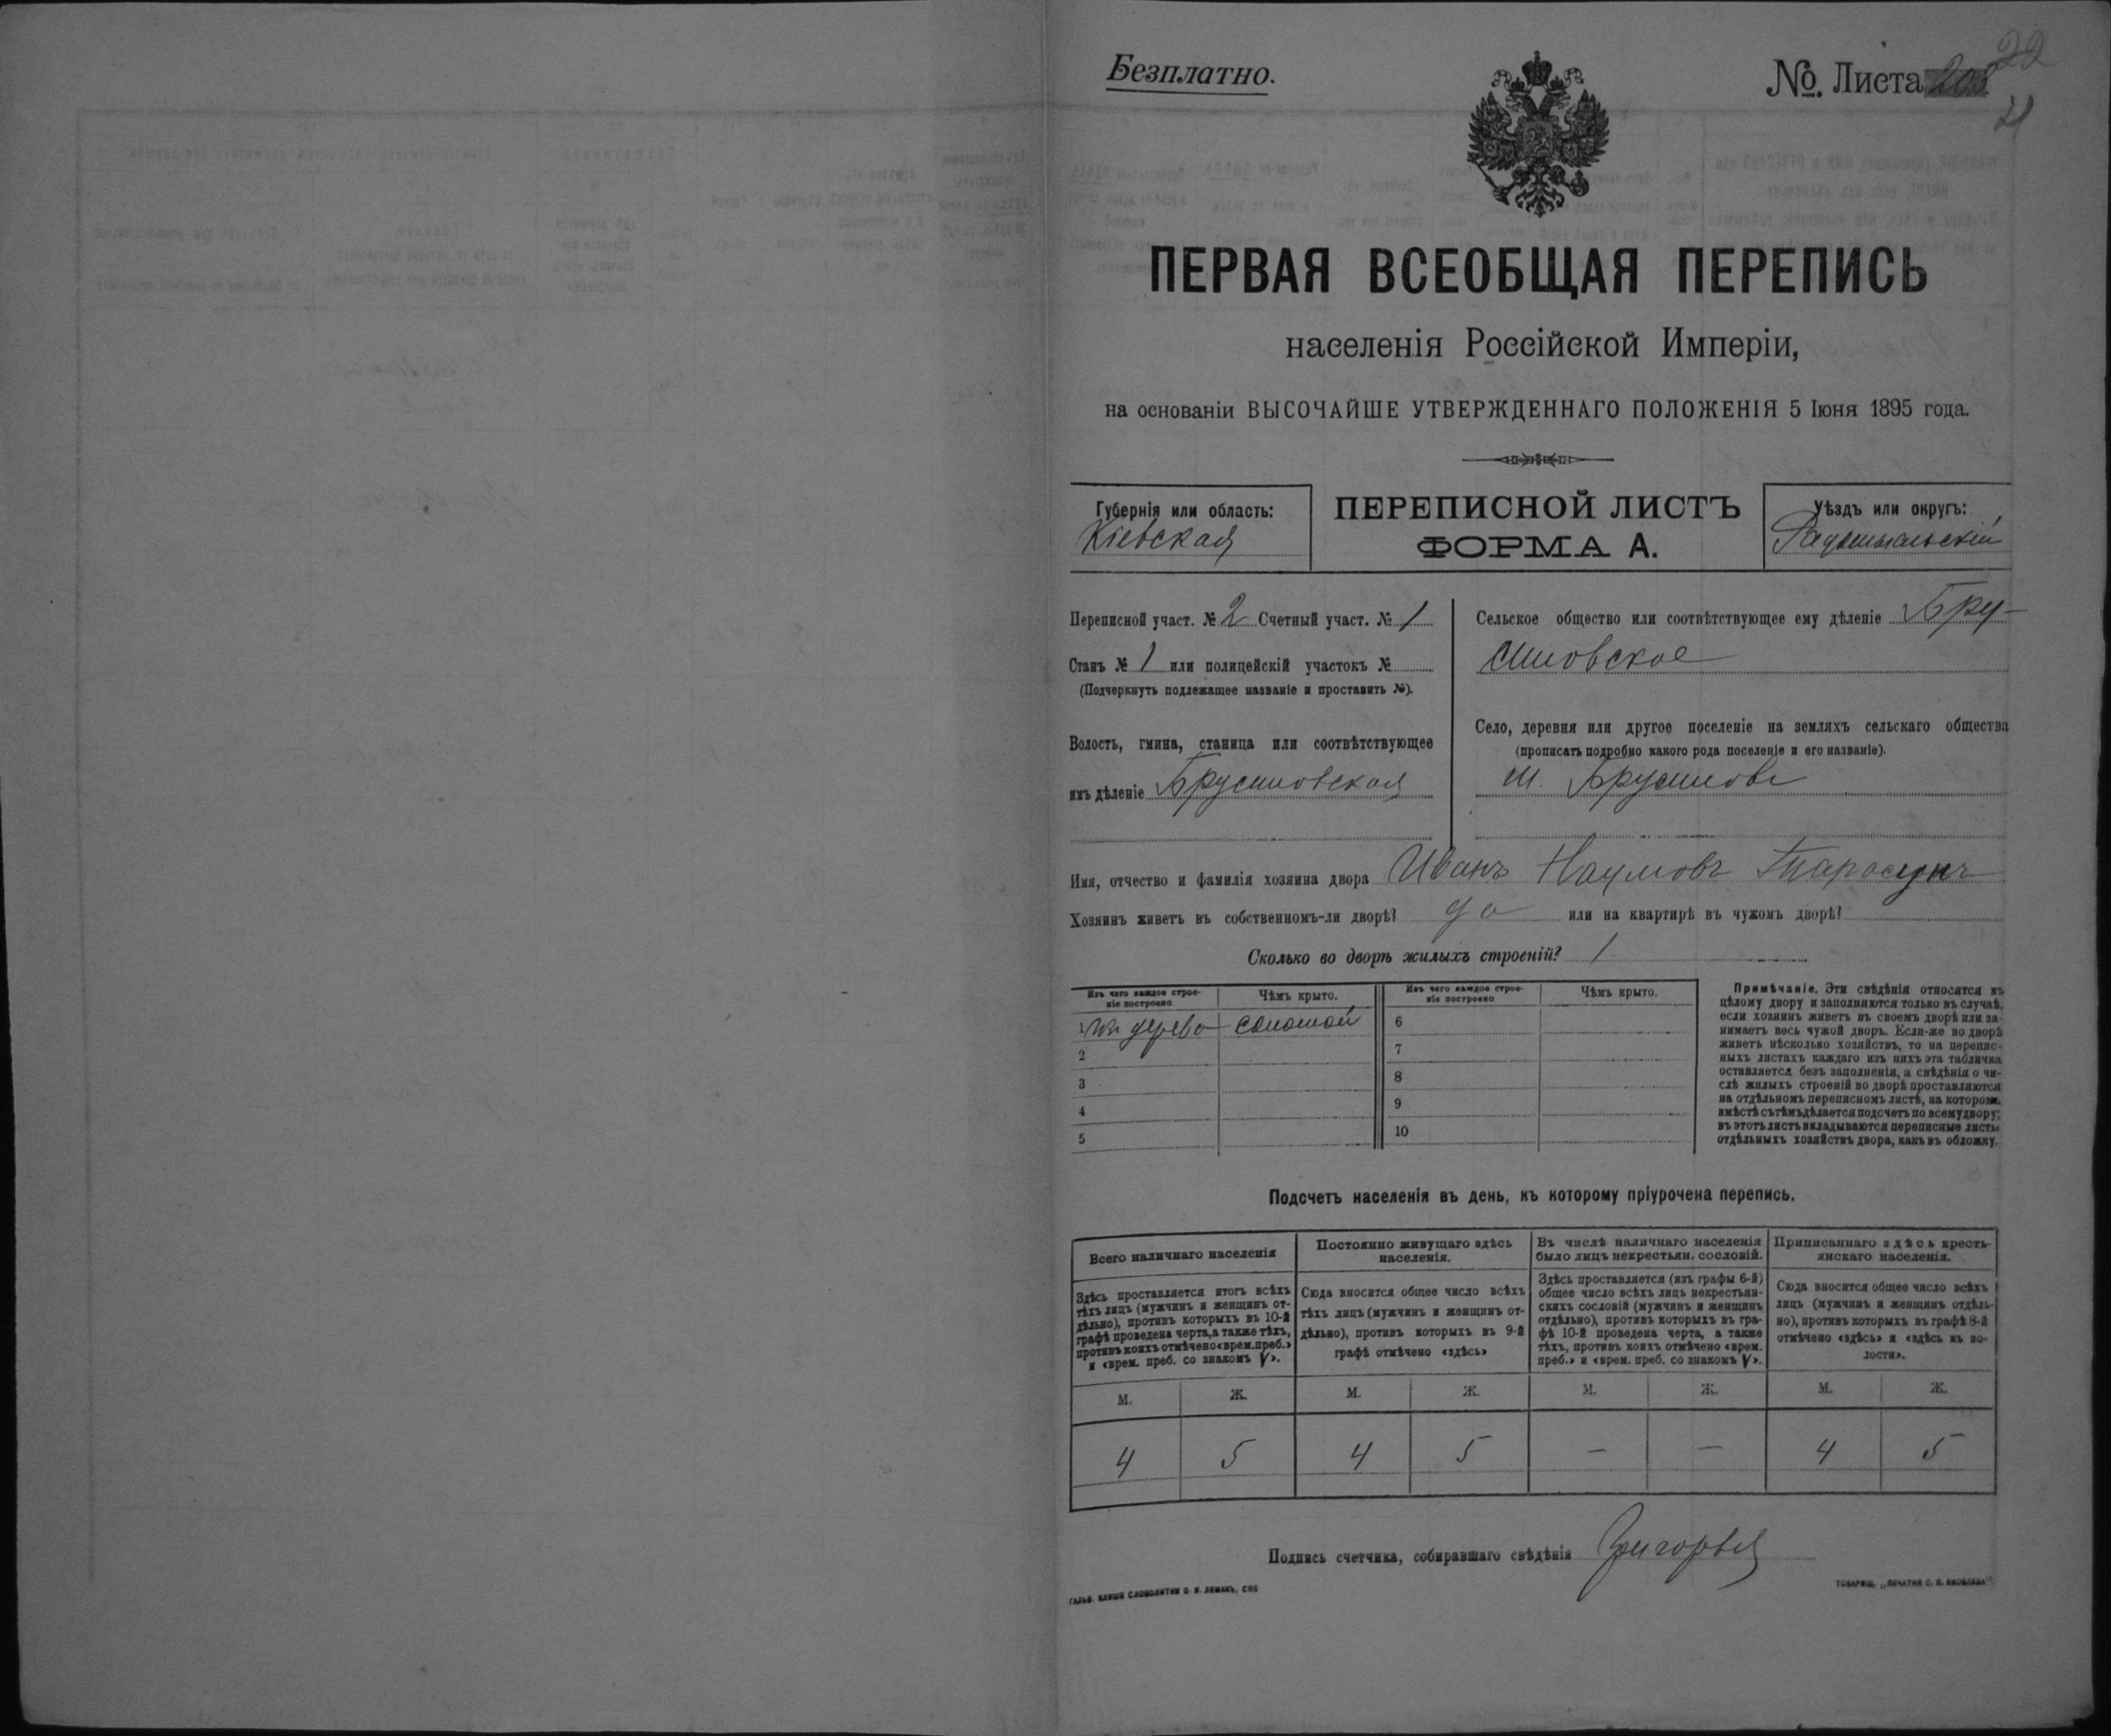 Безплатно.
№. Листа 208
22
21
ПЕРВАЯ ВСЕОБЩАЯ ПЕРЕПИСЬ
населенія Россійской Имперіи,
на основаніи ВЫСОЧАЙШЕ УТВЕРЖДЕННАГО ПОЛОЖЕНІЯ 5 Іюня 1895 года.
Губернія или область:
Кіевская
ПЕРЕПИСНОЙ ЛИСТЪ
ФОРМА А.
Уѣздъ или округъ:
Радомысльскій
Переписной участ. № 2 Счетный участ. № 1
Станъ № 1 или полицейскій участокъ №
(Подчеркнуть подлежащее названіе и проставить №).
Волость, гмина, станица или соотвѣтствующее
имъ дѣленіе Брусиловская
Сельское общество или соотвѣтствующее ему дѣленіе Бру-
силовское
Село, деревня или другое поселеніе на земляхъ сельскаго общества
(прописать подробно какого рода поселеніе и его названіе).
м. Брусиловъ
Имя, отчество и фамилія хозяина двора Иванъ Наумовъ
Хозяинъ живетъ въ собственномъ-ли дворѣ? да или на квартирѣ въ чужомъ дворѣ?
Сколько во дворѣ жилыхъ строеній? 1
Изъ чего каждое строе-
ніе построено
Чѣмъ крыто.
Изъ чего каждое строе-
ніе построено
Чѣмъ крыто.
1 изъ дерева соломой
2
3
4
5
6
7
8
9
10
Примѣчаніе. Эти свѣдѣнія относятся къ
цѣлому двору и заполняются только въ случаѣ,
если хозяинъ живетъ въ своемъ дворѣ или за-
нимаетъ весь чужой дворъ. Если-же во дворѣ
живетъ нѣсколько хозяйствъ, то на перепис-
ныхъ листахъ каждаго изъ нихъ эта табличка
оставляется безъ заполненія, а свѣдѣнія о чи-
слѣ жилыхъ строеній во дворѣ проставляются
на отдѣльномъ переписномъ листѣ, на которомъ
вмѣстѣ съ тѣмъ дѣлается подсчетъ по всему двору;
въ этотъ листъ вкладываются переписные листы
отдѣльныхъ хозяйствъ двора, какъ въ обложку.
Подсчетъ населенія въ день, къ которому пріурочена перепись.
Всего наличнаго населенія
Здѣсь проставляется итогъ всѣхъ
тѣхъ лицъ (мужчинъ и женщинъ от-
дѣльно), противъ которыхъ въ 10-й
графѣ проведена черта, а также тѣхъ,
противъ коихъ отмѣчено «врем. преб.»
и «врем. преб. со знакомъ V».
Постоянно живущаго здѣсь
населенія.
Сюда вносится общее число всѣхъ
тѣхъ лицъ (мужчинъ и женщинъ от-
дѣльно), противъ которыхъ въ 9-й
графѣ отмѣчено «здѣсь»
Въ числѣ наличнаго населенія
было лицъ некрестьян. сословій.
Здѣсь проставляется (изъ графы 6-й)
общее число всѣхъ лицъ некрестьян-
скихъ сословій (мужчинъ и женщинъ
отдѣльно), противъ которыхъ въ гра-
фѣ 10-й проведена черта, а также
тѣхъ, противъ коихъ отмѣчено «врем.
преб.» и «врем. преб. со знакомъ V».
Приписаннаго здѣсь кресть-
янскаго населенія.
Сюда вносится общее число всѣхъ
лицъ (мужчинъ и женщинъ отдѣль-
но), противъ которыхъ въ графѣ 8-й
отмѣчено «здѣсь» и «здѣсь къ во-
лости».
М. Ж. М. Ж. М. Ж. М. Ж.
4 5 4 5 — — 4 5
Подпись счетчика, собиравшаго свѣдѣнія
ГАЛЬВ. КЛИШЕ СЛОВОЛИТНИ О. И. ЛЕМАНЪ, СПБ
ТОВАРИЩ. „ПЕЧАТНЯ С. П. ЯКОВЛЕВА"